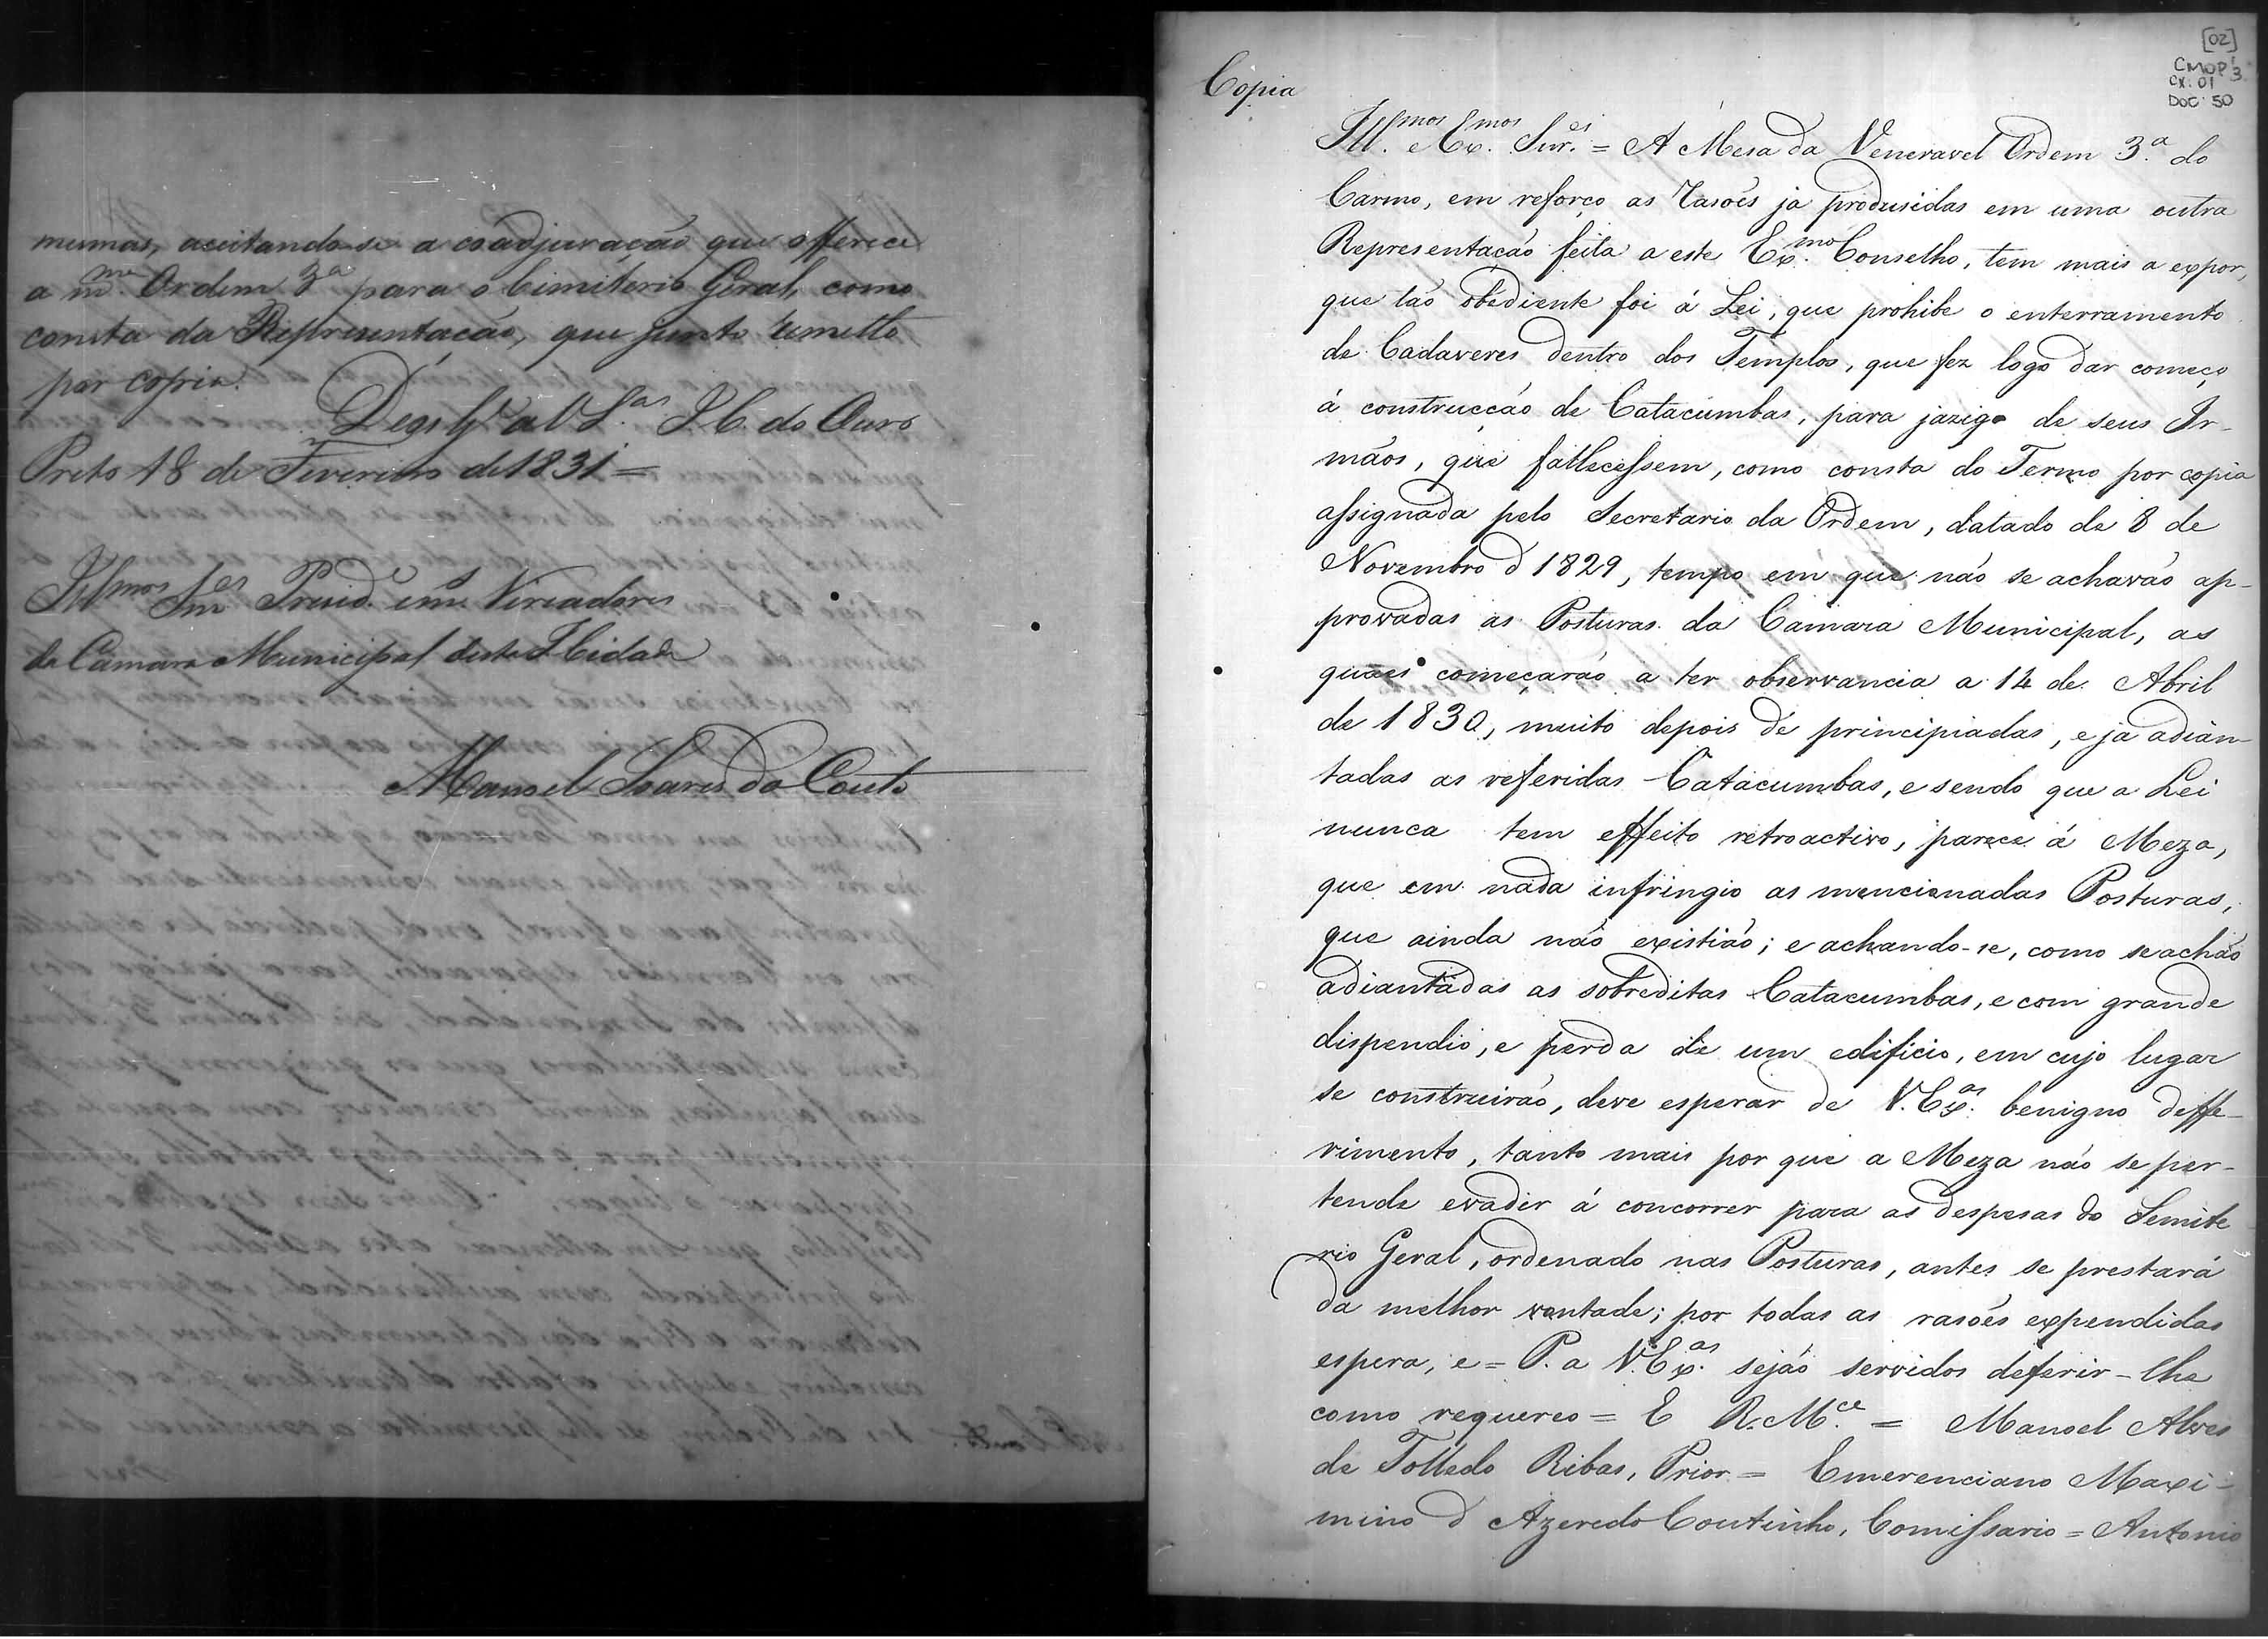 mumas, aceitando-se a coadjuvação que offerece
a m.ma Ordem 3a para o Cimiterio Geral, como
consta da Representacão, que junto remetto
por copia.
Deos G.e a V S.as I C. do Ouro
Preto 18 de Fevereiro de 1831=
Illmos Snres Presid.e e mais Vereadores
da Camara Municipal desta I Cidade
Manoel Soares do Couto
[02]
CMOP 3
CX: 01
DOC: 50
Copia
Ill.mos e Ex.mos Snr.es = A Mesa da Veneravel Ordem 3.a do
Carmo, em reforço as rasoẽs ja produsidas em uma outra
Representacão feita a este Ex.mo Conselho, tem mais a expor,
que tão obediente foi á Lei, que prohibe o enterramento
de Cadaveres dentro dos Templos, que fez logo dar começo
á construcção de Catacumbas, para jazigo de seus Ir-
mãos, que fallecessem, como consta do Termo por copia
assignada pelo Secretario da Ordem, datado de 8 de
Novembro d 1829, tempo em que não se achavão ap-
provadas as Posturas da Camara Municipal, as
quaes começarão a ter observancia a 14 de Abril
de 1830, muito depois de principiadas, e já adian-
tadas as referidas Catacumbas, e sendo que a Lei
nunca tem effeito retroactivo, parece á Meza,
que em nada infringio as mencionadas Posturas,
que ainda não existião; e achando-se, como se achão
adiantadas as sobreditas Catacumbas, e com grande
dispendio, e perda de um edificio, em cujo lugar
se construirão, deve esperar de V. Ex.as benigno deffe-
rimento, tanto mais por que a Meza não se per-
tende evadir á concorrer para as despesas do Semite
rio Geral, ordenado nas Posturas, antes se prestará
da melhor vontade; por todas as rasões expendidas
espera, e = P. a V. Ex.as sejão servidos deferir-lhe
como requereo = E R. M.ce = Manoel Alves
de Tolledo Ribas, Prior = Emerenciano Maxi-
mino d Azeredo Coutinho, Comissario = Antonio